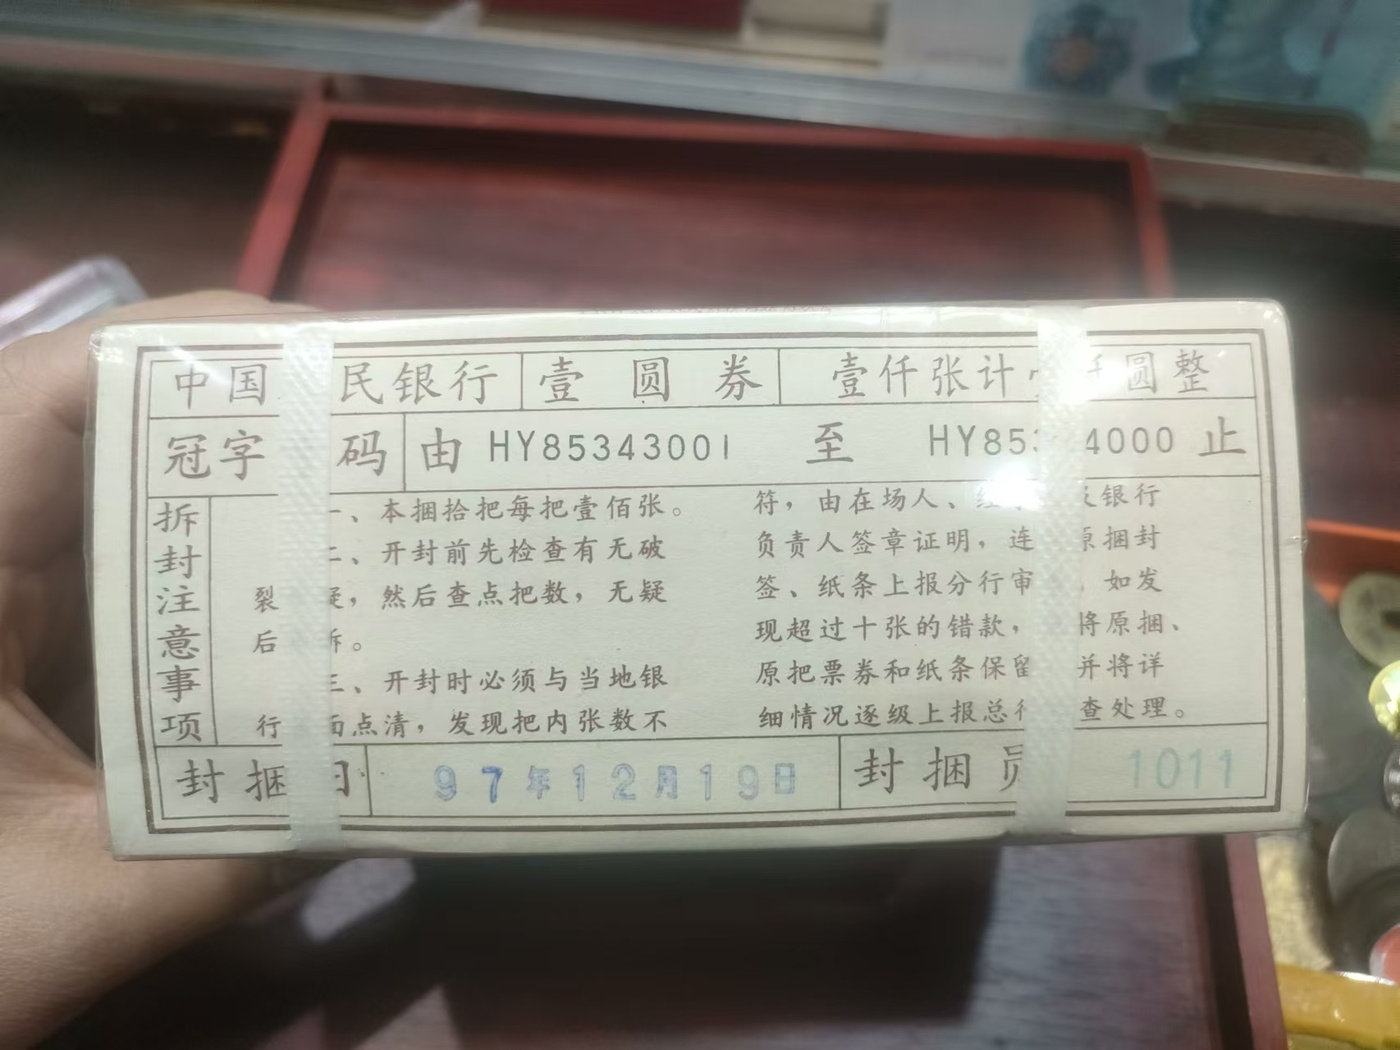 中国 民银行 壹圆券 壹仟张计 仟圆整
冠字 码 由 HY85343001 至 HY853 4000 止
拆封注意事项
一、本捆拾把每把壹佰张。
二、开封前先检查有无破
裂 疑，然后查点把数，无疑
后 拆。
三、开封时必须与当地银
行 面点清，发现把内张数不
符，由在场人、经 及银行
负责人签章证明，连 原捆封
签、纸条上报分行审 ，如发
现超过十张的错款， 将原捆、
原把票券和纸条保留 并将详
细情况逐级上报总行 查处理。
封捆 日 97年12月19日 封捆员 1011